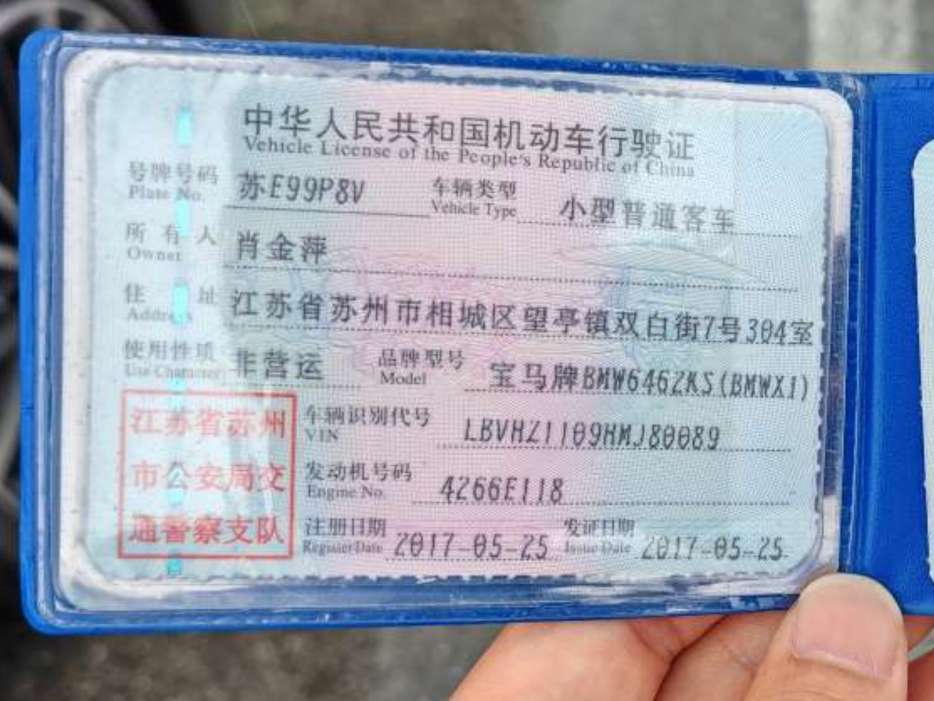 中华人民共和国机动车行驶证
Vehicle License of the People's Republic of China
号牌号码 苏E99P8V 车辆类型 小型普通客车
Plate No. Vehicle Type
所有人 肖金萍
Owner
住址 江苏省苏州市相城区望亭镇双白街7号304室
Address
使用性质 非营运 品牌型号 宝马牌BMW6462KS(BMWX1)
Use Character Model
江苏省苏州 车辆识别代号 LBVHZ1109HMJ80089
VIN
市公安局交 发动机号码 4266E118
Engine No.
通警察支队 注册日期 2017-05-25 发证日期 2017-05-25
Register Date Issue Date